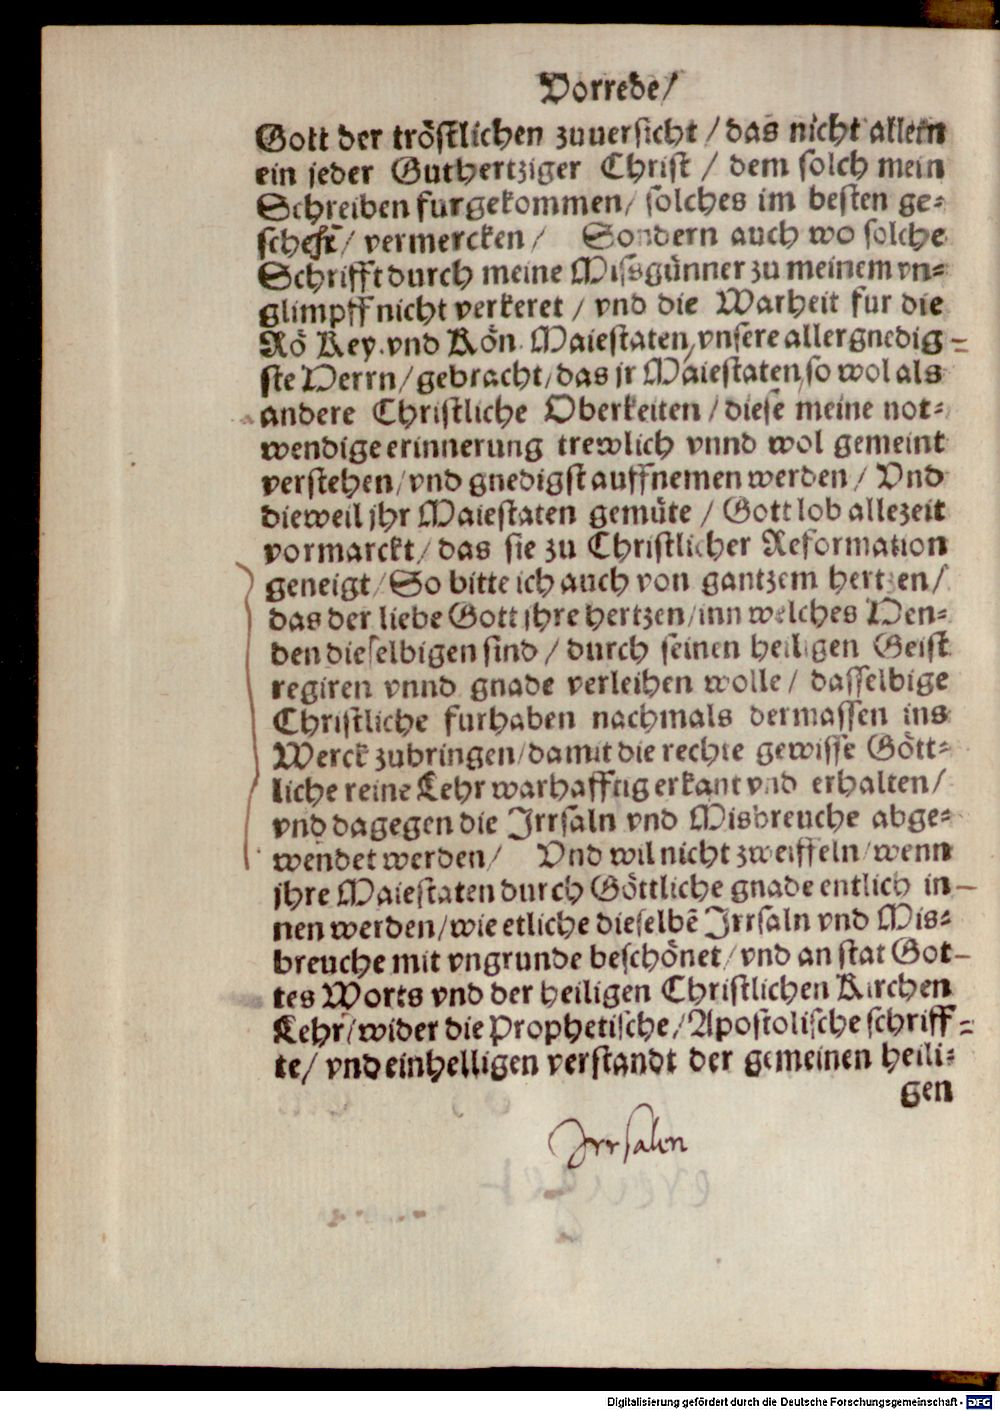 Vorrede/
Gott der tröstlichen zuuersicht / das nicht allein
ein jeder Guthertziger Christ / dem solch mein
Schreiben furgekommen / solches im besten ge⸗
schehe / vermercken / Sondern auch wo solche
Schrifft durch meine Missgünner zu meinem vn⸗
glimpff nicht verkeret / vnd die Warheit fur die
Rö Key. vnd Kön. Maiestaten / vnsere allergnedig⸗
ste Herrn / gebracht / das jr Maiestaten / so wol als
andere Christliche Oberkeiten / diese meine not⸗
wendige erinnerung trewlich vnnd wol gemeint
verstehen / vnd gnedigst auffnemen werden / Vnd
dieweil jhr Maiestaten gemüte / Gott lob allezeit
vormarckt / das sie zu Christlicher Reformation
geneigt / So bitte ich auch von gantzem hertzen /
das der liebe Gott jhre hertzen / inn welches Hen⸗
den dieselbigen sind / durch seinen heiligen Geist
regiren vnnd gnade verleihen wolle / dasselbige
Christliche furhaben nachmals dermassen ins
Werck zubringen / damit die rechte gewisse Gött⸗
liche reine Lehr warhafftig erkant vnd erhalten /
vnd dagegen die Irrsaln vnd Misbreuche abge⸗
wendet werden / Vnd wil nicht zweiffeln / wenn
jhre Maiestaten durch Göttliche gnade entlich in⸗
nen werden / wie etliche dieselbē Irrsaln vnd Mis⸗
breuche mit vngrunde beschönet / vnd an stat Got⸗
tes Worts vnd der heiligen Christlichen Kirchen
Lehr / wider die Prophetische / Apostolische schriff⸗
te / vnd einhelligen verstandt der gemeinen heili⸗
gen
Irrsalen
Digitalisierung gefördert durch die Deutsche Forschungsgemeinschaft - DFG